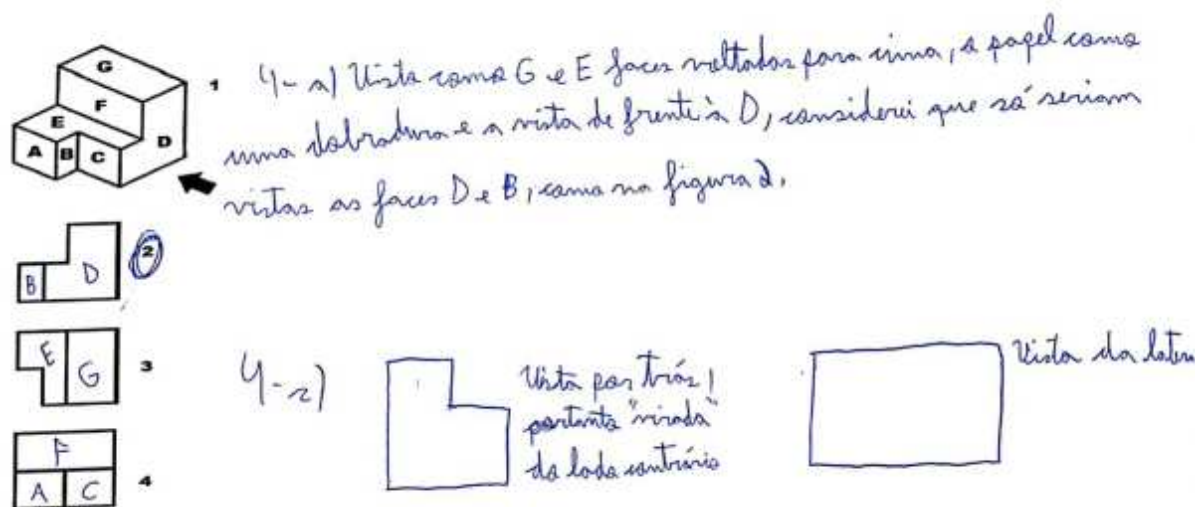 G
F
E
A B C D
1
4-a) Vista como G e E faces voltadas para cima, o papel como
uma dobradura e a vista de frente à D, considerei que só seriam
vistas as faces D e B, como na figura 2.
B D
2
E G
3
F
A C
4
4-c)
Vista por trás,
portanto "virada"
do lado contrário
Vista da later